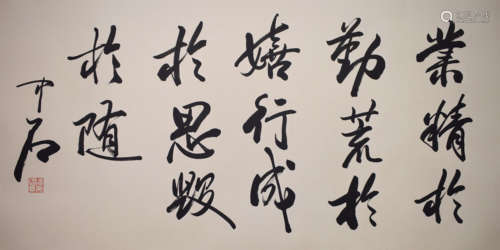 業精於
勤荒於
嬉行成
於思毀
於随
中石